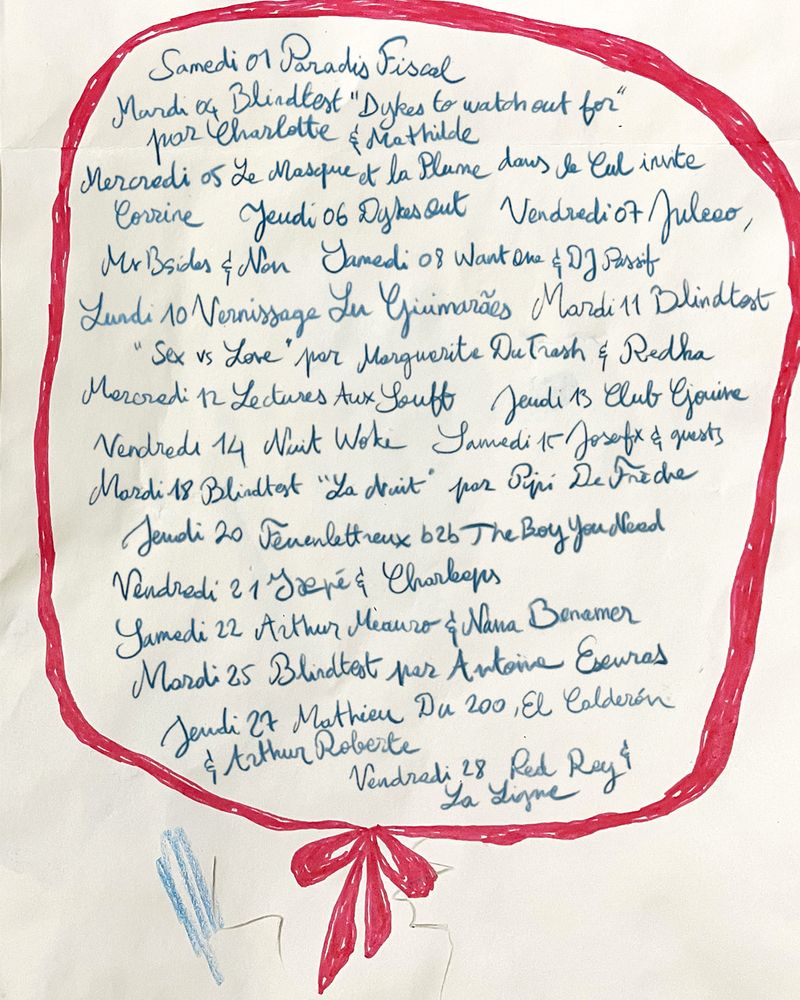 Samedi 01 Paradis Fiscal
Mardi 04 Blindtest "Dykes to watch out for"
par Charlotte & Mathilde
Mercredi 05 Le Masque et la Plume dans le Cul invite
Corrine Jeudi 06 Dykes out Vendredi 07 Juleeo,
Mr Bsides & Non Samedi 08 Want One & DJ Passif
Lundi 10 Vernissage Lu Guimarães Mardi 11 Blindtest
"Sex vs Love" par Marguerite Du Trash & Redha
Mercredi 12 Lectures Aux Souff Jeudi 13 Club Gouine
Vendredi 14 Nuit Woke Samedi 15 Josefx & guests
Mardi 18 Blindtest "La Nuit" par Pipi De Frèche
Jeudi 20 b2b The Boy You Need
Vendredi 21 & Charleeps
Samedi 22 Arthur Meauro & Nana Benamer
Mardi 25 Blindtest par Antoine Eseuras
Jeudi 27 Mathieu Du 200, El Calderón
& Arthur Roberte
Vendredi 28 Red Rey &
La Ligne